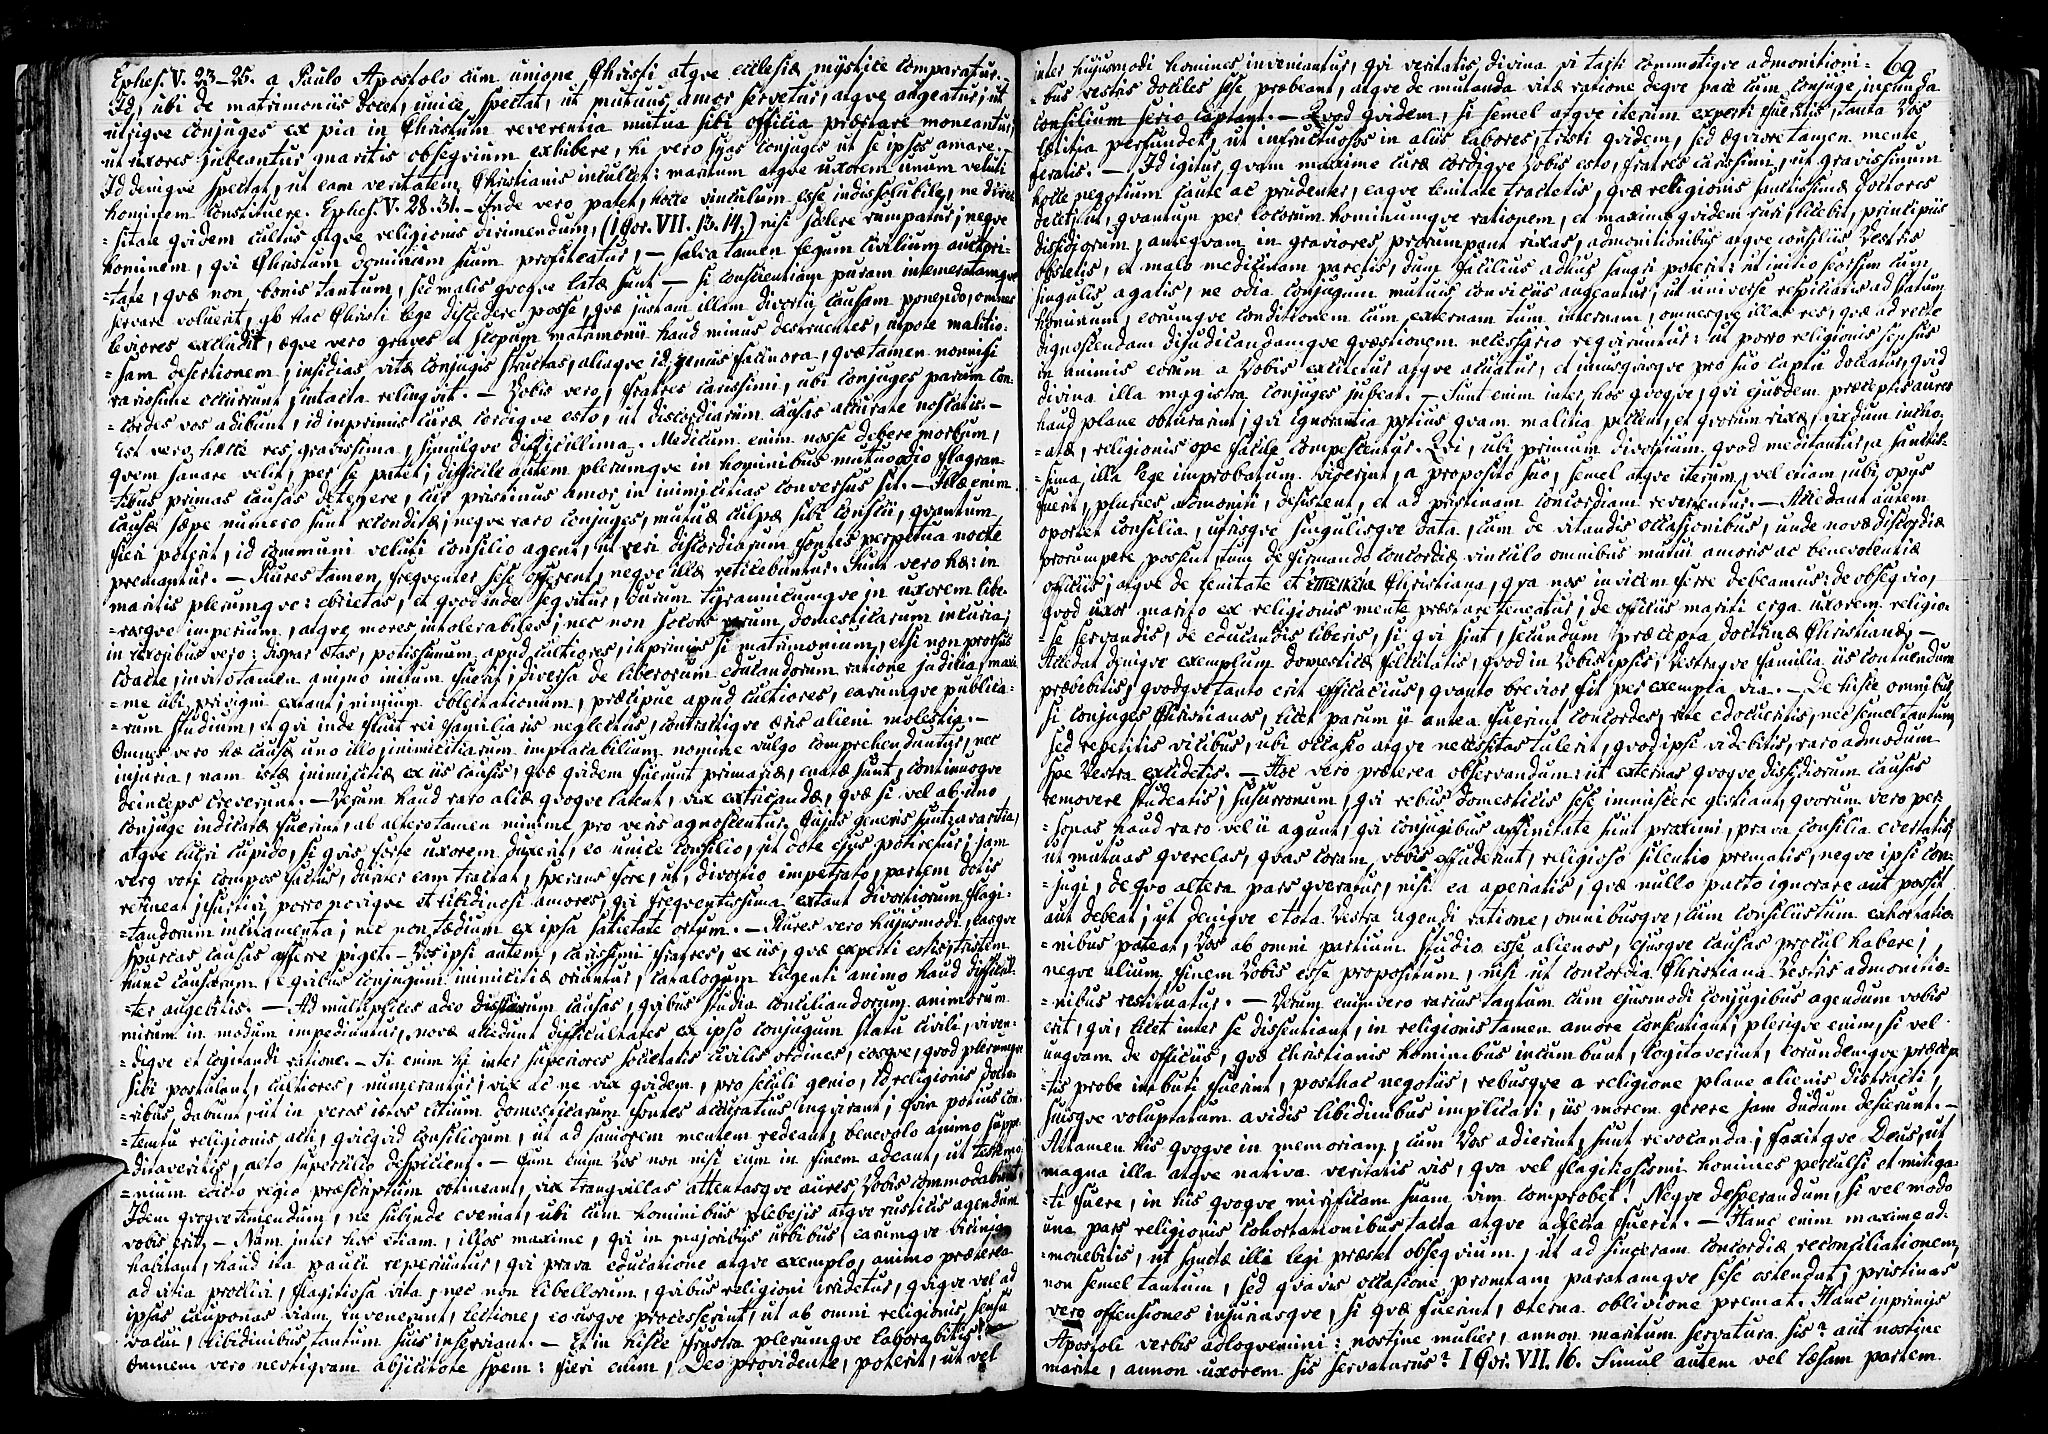 Ephes. V. 23-25. a Paulo Apostolo cum unione Christi atqve ecclesiæ mystice comparatur.-
Id, ubi de matrimoniis docet, unice spectat, ut mutuus amor servetur, atqve augeatur; ut
utrisqve conjuges ex pia in Christum reverentia mutua sibi officia præstare moneantur,
ut uxores jubeantur maritis obseqvium exhibere, hi vero suas conjuges ut se ipsos amare.-
Id deniqve spectat, ut eam veritatem Christianis inculcet: maritum atqve uxorem unum veluti
hominem constituere. Ephes. V. 28. 31. - Inde vero patet, hocce vinculum esse indissolubile, ne diver
=sitate qvidem cultus atqve religionis dirimendum, (1 Cor. VII. 13. 14.) nisi scelere rumpatur; neqve
hominem, qvi Christum dominum suum profiteatur, - salva tamen legum civilium auctori=
=tate, qvæ non bonis tantum, sed malis qvoqve latæ sunt - si conscientiam puram intemeratamqve
servare voluerit, ab hac Christi lege discedere posse, qvæ justam illam divortii causam ponendo, omnes
leviores excludit, æqve vero graves et scopum matrimonii haud minus destruentes, utpote malitio=
=sam desertionem, insidias vitæ conjugis structas, aliaqve id genus facinora, qvæ tamen nonnisi
rarissime occurrunt, intacta relinqvit. - Vobis vero, fratres carissimi, ubi conjuges parum con=
=cordes vos adibunt, id inprimis curæ cordiqve esto, ut discordiarum causas accurate noscatis. -
Est vero hæcce res gravissima, simulqve difficillima. Medicum enim nosse debere morbum,
qvem sanare velit, per se patet; difficile autem plerumqve in hominibus mutuo odio flagran=
tibus primas causas detegere, cur pristinus amor in inimicitias conversus sit. - Illæ enim
causæ sæpe numero sunt reconditæ; neqve raro conjuges, mutuæ culpæ sibi conscii, qvantum
fieri poterit, id communi veluti consilio agent, ut veri discordiarum fontes perpetua nocte
premantur. - Plures tamen freqventer sese offerent, neqve illæ reticebuntur. Sunt vero hæ: in
maritis plerumqve: ebrietas, et qvod inde seqvitur, durum tyrannicumqve in uxorem libe=
=rosqve imperium, atqve mores intolerabiles; nec non socors rerum domesticarum incuria;
in uxoribus vero: dispar ætas, potissimum apud cultiores, inprimis si matrimonium, etsi non prorsus
coacte, invito tamen animo initum fuerit; diversa de liberorum educandorum ratione judicia, maxi
=me ubi privigni extant; nimium oblectationum, præcipue apud cultiores, earumqve publica=
=rum studium, et qvi inde fluit rei familiaris neglectus, contractiqve æris alieni molestia. -
Omnes vero hæ causæ uno illo, inimicitiarum implacabilium nomine vulgo comprehenduntur, nec
injuria, nam istæ inimicitiæ ex iis causis, qvæ qvidem fuerunt primariæ, enatæ sunt, continuoqve
deinceps creverunt. - Verum haud raro aliæ qvoqve latent, vix extricandæ, qvæ si vel ab uno
conjuge indicatæ fuerint, ab altero tamen minime pro veris agnoscentur. Cujus generis sunt: avaritia,
atqve lucri cupido, si qvis forte uxorem duxerit, eo unice consilio, ut dote ejus potiretur; jam
vero voti compos factus, duriter eam tractat, sperans fore, ut, divortio impetrato, partem dotis
retineat; furtivi porro noviqve et libidinosi amores, qvi freqventissima extant divortiorum flagi=
=tandorum incitamenta; nec non tædium ex ipsa satietate ortum. - Plures vero hujusmodi, easqve
spurcas causas afferre piget. - Vos ipsi autem, carissimi fratres, ex iis, qvæ experti estis, tristem
hunc causarum, e qvibus conjugum inimicitiæ oriantur, catalogum lugenti animo haud difficul=
=ter augebitis. - Ad multiplices adeo causas, qvibus studia conciliandorum animorum
mirum in modum impediuntur, novæ accedunt difficultates ex ipso conjugum statu civili, viven=
=diqve et cogitandi ratione. - Si enim hi inter superiores societatis civilis ordines, eosqve, qvod plerumqve
sibi postulant, cultiores, numerantur; vix ac ne vix qvidem, pro seculi genio, id religionis docto
=ribus dabunt, ut in veros istos litium domesticarum fontes accuratius inqvirant; qvin potius con=
=temtu religionis acti, qvicqvid consiliorum, ut ad saniorem mentem redeant, benevolo animo suppe
=ditaveritis, alto supercilio despicient. - Cum enim vos non nisi eum in finem adeant, ut testimo=
=nium edicto regio præscriptum obtineant, vix tranqvillas attentasqve aures Vobis commodabunt.
Idem qvoqve timendum, ne subinde eveniat, ubi cum hominibus plebejis atqve rusticis agendum
vobis erit. - Nam inter hos etiam, illos maxime, qvi in majoribus urbibus, earumqve vicinia
habitant, haud ita pauci reperiuntur, qvi prava educatione atqve exemplo, animo præterea
ad vitia proclivi, flagitiosa vita, nec non libellorum, qvibus religioni irridetur, qviqve vel ad
ipsas cauponas viam invenerunt, lectione, eousqve processerint, ut ab omni religionis sensu
vacui, libidinibus tantum suis inserviant. - Et in hisce frustra plerumqve laborabitis! -
Omnem vero neutiqvam abjicitote spem: fieri enim, Deo providente, poterit, ut vel
69
inter hujusmodi homines inveniantur, qvi veritatis divina vi tacti commotiqve admonitioni=
=bus vestris dociles sese præbeant, atqve de mutanda vitæ ratione deqve pace cum conjuge ineunda
consilium serio captent. - Qvod qvidem, si semel atqve iterum experti fueritis, tanta vos
lætitia perfundet, ut infructuosos in aliis labores, tristi qvidem, sed æqviore tamen mente
feratis. - Id igitur qvam maxime curæ cordiqve Vobis esto, fratres carissimi, ut gravissimum
hocce negotium caute ac prudenter, eaqve lenitate tractetis, qvæ religionis sanctissimæ doctores
deceat, qvantum per locorum hominumqve rationem, et maxime qvidem ruri, licebit, principiis
dissidiorum, anteqvam in graviores prorumpant rixas, admonitionibus atqve consiliis Vestris
obstetis, et malo medicinam paretis, dum facilius adhuc sanari poterit: ut initio seorsim cum
singulis agatis, ne odia conjugum mutuis conviciis augeantur; ut universe respiciatis ad statum
hominum, eorumqve conditionem cum externam tum internam, omnesqve illas res, qvæ ad recte
dignoscendam dijudicandamqve qvæstionem necessario reqviruntur: ut porro religionis sensus
in animis eorum a Vobis excitetur atqve acuatur, et unusqvisqve pro suo captu doceatur, qvid
divina illa magistra conjuges jubeat. - Sunt enim inter hos qvoqve, qvi ejusdem præceptis aures
haud plane obturarint; qvi ignorantia potius qvam malitia peccent, et qvorum rixæ, vixdum incho=
=atæ, religionis ope facile compescentur. Qvi, ubi primum divortium qvod meditantur, a sanctis=
=sima illa lege improbatum viderint, a proposito suo, semel atqve iterum, vel etiam, ubi opus
fuerit, pluries admoniti, desistent, et ad pristinam concordiam revertentur. - Accedant autem
oportet consilia, utrisqve singulisqve data, cum de vitandis occasionibus, unde novæ discordiæ
prorumpere possint, tum de firmando concordiæ vinculo omnibus mutui amoris ac benevolentiæ
officiis; atqve de lenitate et επιεικεια Christiana, qva nos invicem ferre debeamus: de obseqvio,
qvod uxor marito ex religionis mente præstare teneatur; de officiis mariti erga uxorem religio=
=se servandis, de educandis liberis, si qvi sint, secundum præcepta doctrinæ Christianæ. -
Accedat deniqve exemplum domesticæ felicitatis, qvod in Vobis ipsis, Vestraqve familia iis contuendum
præbebitis; qvodqve tanto erit efficacius, qvanto brevior fit per exempla via. - De hisce omnibus
si conjuges Christianos, licet parum ii antea fuerint concordes, rite edocueritis, nec semel tantum,
sed repetitis vicibus, ubi occasio atqve necessitas tulerit, qvod ipsi videbitis, raro admodum
spe Vestra excidetis. - Hoc vero præterea observandum: ut externas qvoqve dissidiorum causas
removere studeatis; susurronum, qvi rebus domesticis sese immiscere gestiant, qvorum vero per=
=sonas haud raro vel ii agunt, qvi conjugibus affinitate sunt proximi, prava consilia evertatis;
ut mutuas qverelas, qvas coram vobis effuderint, religioso silentio prematis, neqve ipsi con=
=jugi, de qvo altera pars qveratur, nisi ea aperiatis, qvæ nullo pacto ignorare aut possit
aut debeat; ut deniqve e tota Vestra agendi ratione, omnibusqve, cum consiliis tum exhortatio=
=nibus pateat, Vos ab omni partium studio esse alienos, ejusqve causas procul habere;
neqve alium finem Vobis esse propositum, nisi ut concordia Christiana Vestris admonitio=
=nibus restituatur. - Verum enimvero rarius tantum cum ejusmodi conjugibus agendum vobis
erit, qvi, licet inter se dissentiant, in religionis tamen amore consentiant; pleriqve enim, si vel
unqvam de officiis, qvæ Christianis hominibus incumbunt, cogitaverint, eorundemqve præcep=
=tis probe imbuti fuerint, posthac negotiis, rebusqve a religione plane alienis distracti,
suisqve voluptatum avidis libidinibus implicati, iis morem gerere jam dudum desierunt. -
Attamen his qvoqve in memoriam, cum Vos adierint, sunt revocanda; faxitqve Deus, ut
magna illa atqve nativa veritatis vis, qva vel flagitiosissimi homines perculsi et mitiga=
=ti fuere, in his qvoqve mirificam suam vim comprobet. Neqve desperandum, si vel modo
una pars religionis cohortationibus tacta atqve adfecta fuerit. - Hanc enim maxime ad=
=monebitis, ut sanctæ illi legi præstet obseqvium, ut ad sinceram concordiæ reconciliationem,
non semel tantum, sed qvavis occasione promtam paratamqve sese ostendat; pristinas
vero offensiones injuriasqve, si qvæ fuerint, æterna oblivione premat. Hanc inprimis
Apostoli verbis adloqvemini: nostine mulier, annon maritum servatura sis? aut nostine
marite, annon uxorem sis servaturus? I Cor. VII. 16. Simul autem vel læsam partem